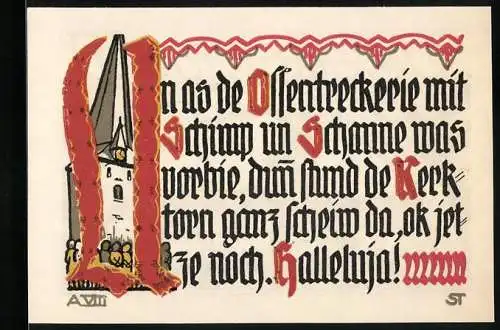 Un as de Ossentreckerie mit
Schimp un Schanne was
vorbie, dum̄ stund de Kerk-
torn ganz scheiw da, ok jet-
ze noch. Halleluja!
A.VIII ST